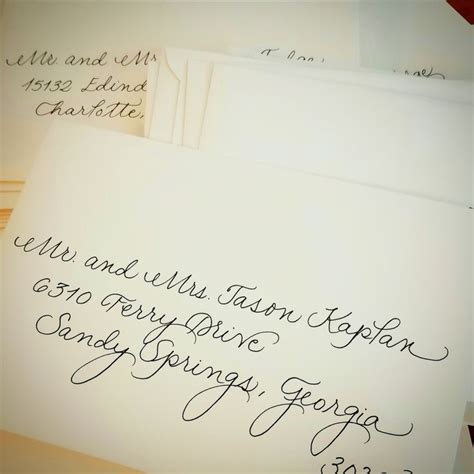 Mr. and
15132
Charlotte,
Mr. and Mrs. Jason Kaplan
6310 Ferry Drive
Sandy Springs, Georgia